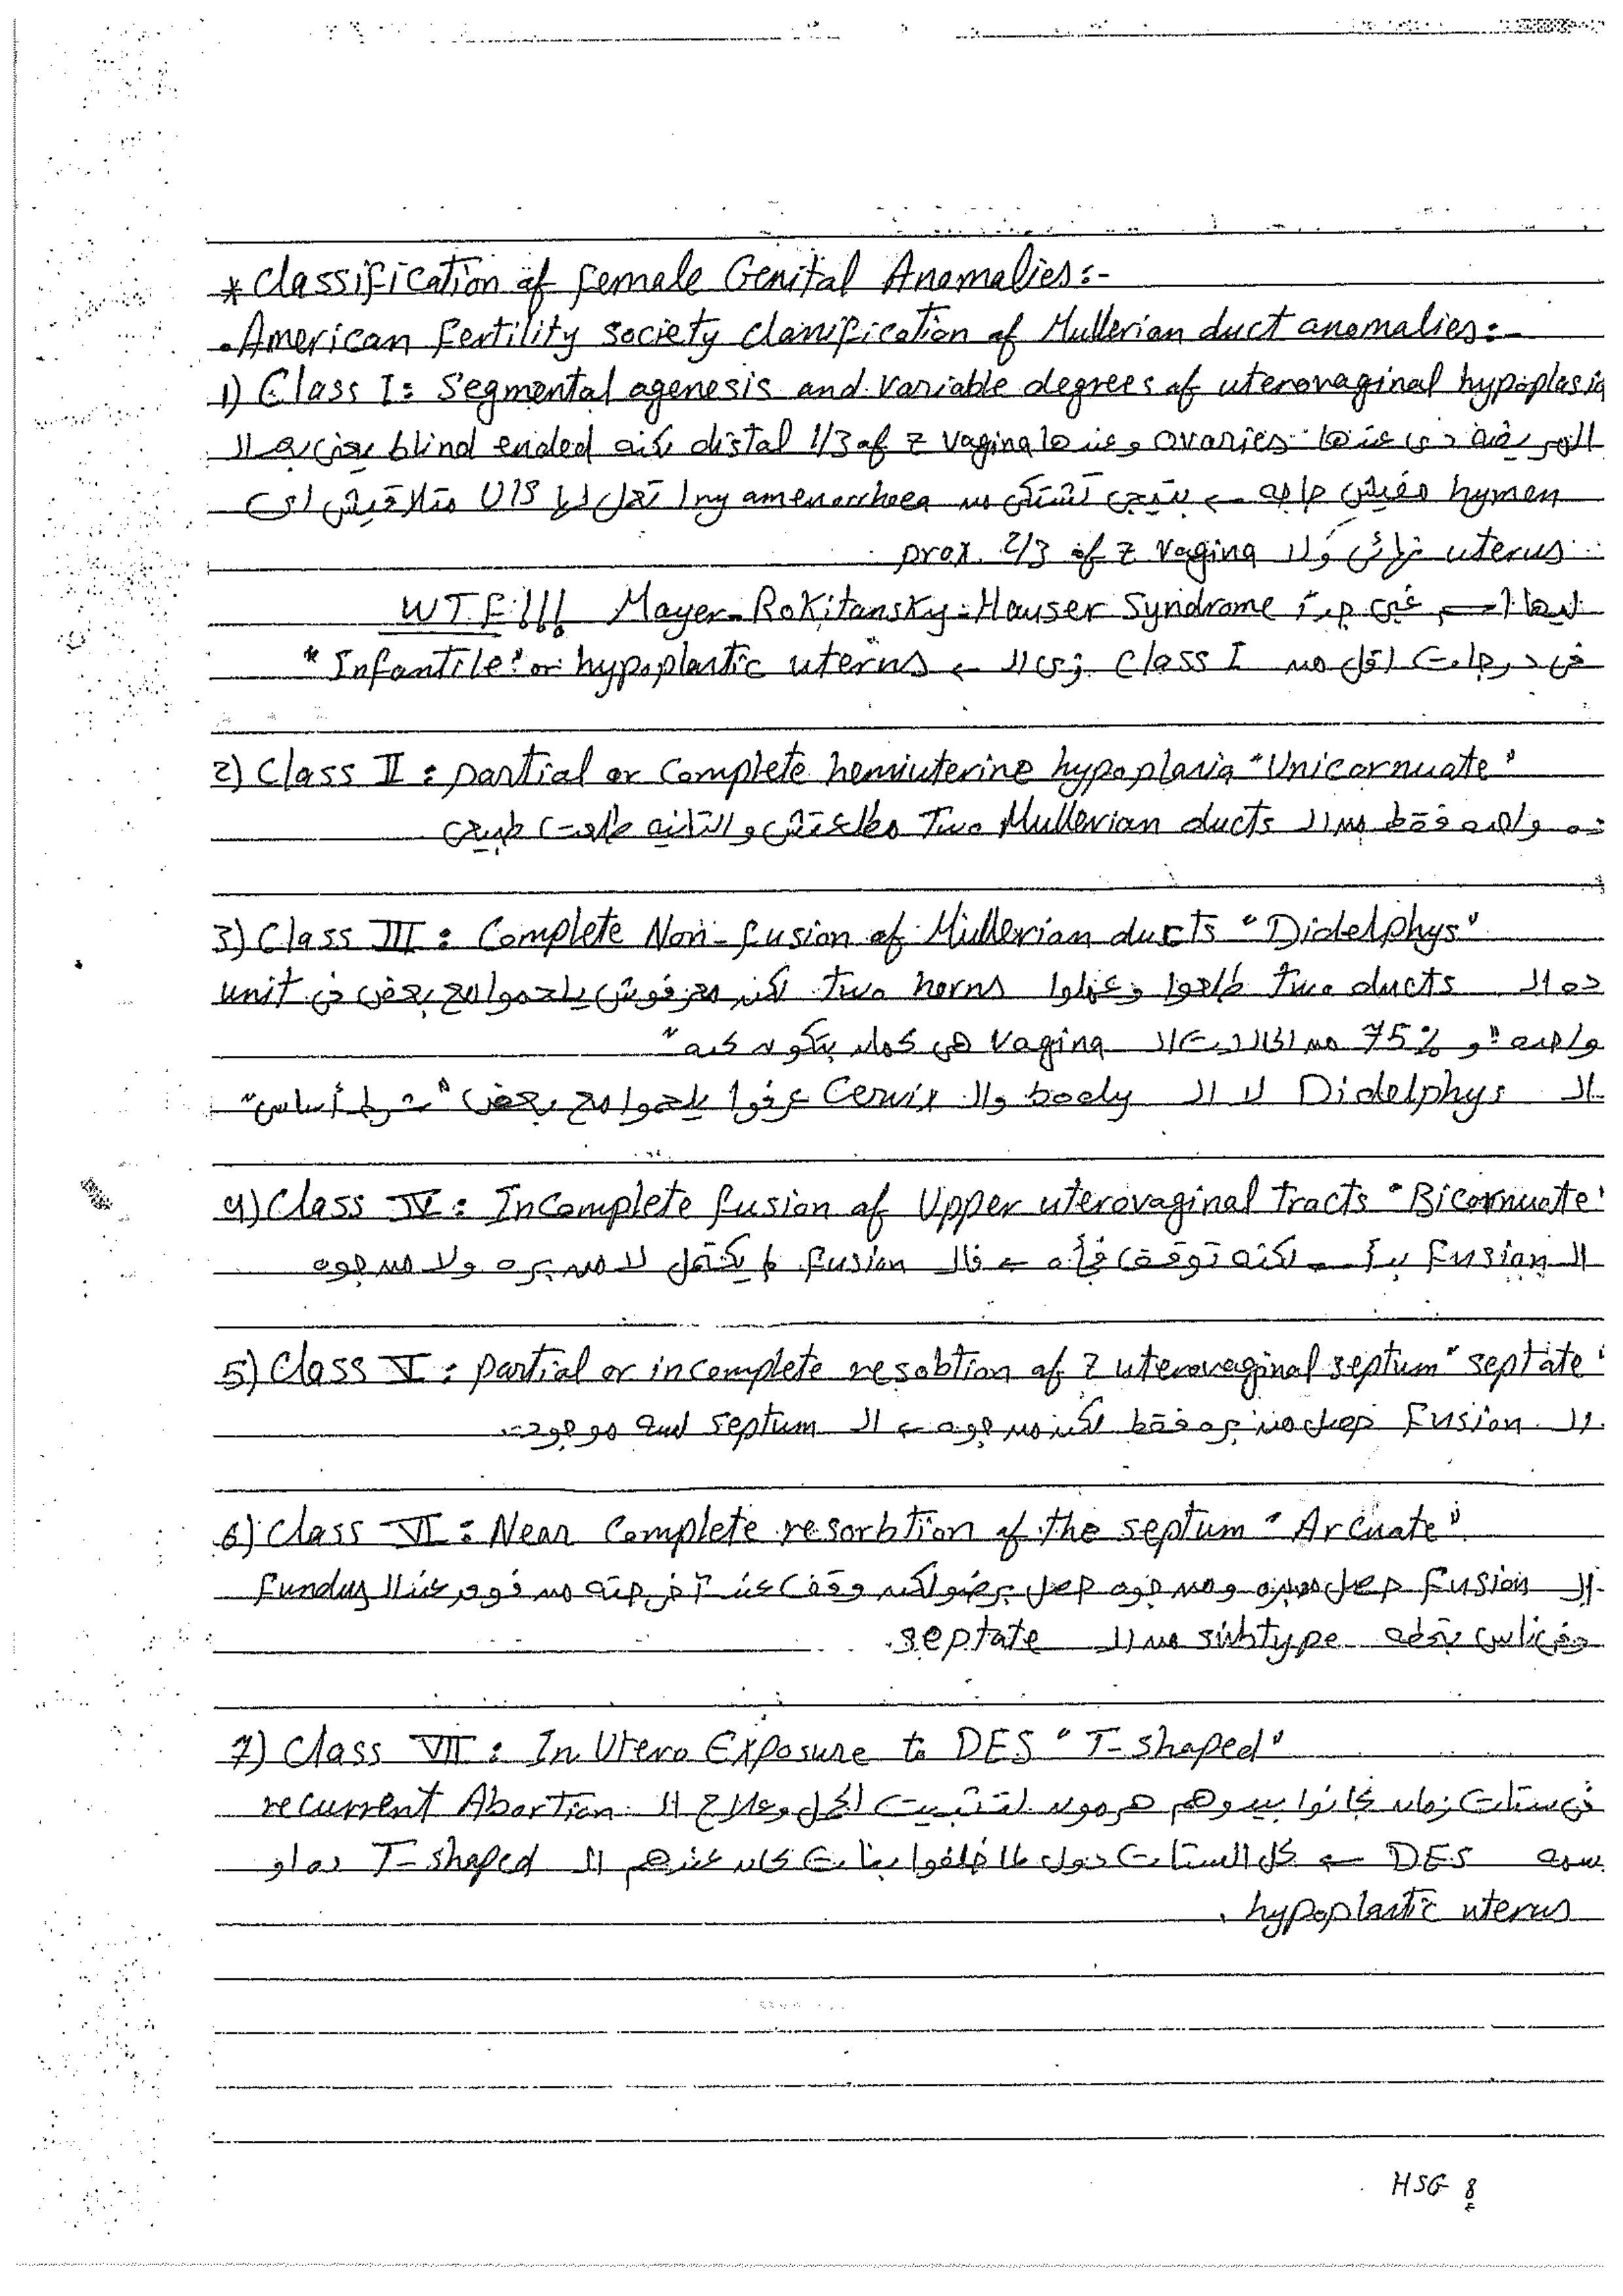 * Classification of female Genital Anomalies:-
. American fertility society classification of Mullerian duct anomalies:-
1) Class I: Segmental agenesis and variable degrees of uterovaginal hypoplasia
المريضه دى عندها ovaries وعندها distal 1/3 of z vagina لكنه blind ended يعنى بعد الـ
hymen مفيش حاجه ← بتيجى تشتكى من 1ry amenorrhea تعمل لها U/S متلاقيش اى
uterus نهائى ولا prox. 2/3 of z vagina
ليها اسم غبى جدا Mayer-Rokitansky-Hauser Syndrome WTF!!!
فى درجات اقل من Class I زى الـ ← "Infantile" or hypoplastic uterus
2) Class II : partial or complete hemiuterine hypoplasia "Unicornuate"
واحده فقط من الـ Two Mullerian ducts مطلعتش والتانيه طلعت طبيعى
3) Class III : Complete Non-fusion of Mullerian ducts "Didelphys"
ده الـ two ducts طلعوا وعملوا two horns لكن معرفوش يلحموا مع بعض فى unit
واحده "و 75% من الحالات الـ vagina هى كمان بتكون كده"
الـ Didelphys لا الـ body والـ Cervix عرفوا يلحموا مع بعض "شرط أساسى"
4) Class IV : Incomplete fusion of Upper uterovaginal tracts "Bicornuate"
الـ fusion بدأ لكنه توقف فجأه ← فالـ fusion لم يكتمل لا من بره ولا من جوه
5) Class V : partial or incomplete resobtion of z uterovaginal septum "septate"
الـ fusion حصل من بره فقط لكن من جوه ← الـ septum لسه موجود
6) Class VI : Near Complete resorbtion of the septum "Arcuate"
الـ fusion حصل من بره ومن جوه حصل برضو لكنه وقف عند آخر حته من فوق عند الـ fundus
وفى ناس بتحطه subtype من الـ septate.
7) Class VII : In Utero Exposure to DES "T-shaped"
فى ستات زمان كانوا بيدوهم هرمون لتثبيت الحمل وعلاج الـ recurrent Abortion
اسمه DES ← كل الستات دول لما خلفوا بنات كان عندهم الـ T-shaped ده او
hypoplastic uterus.
HSG 8